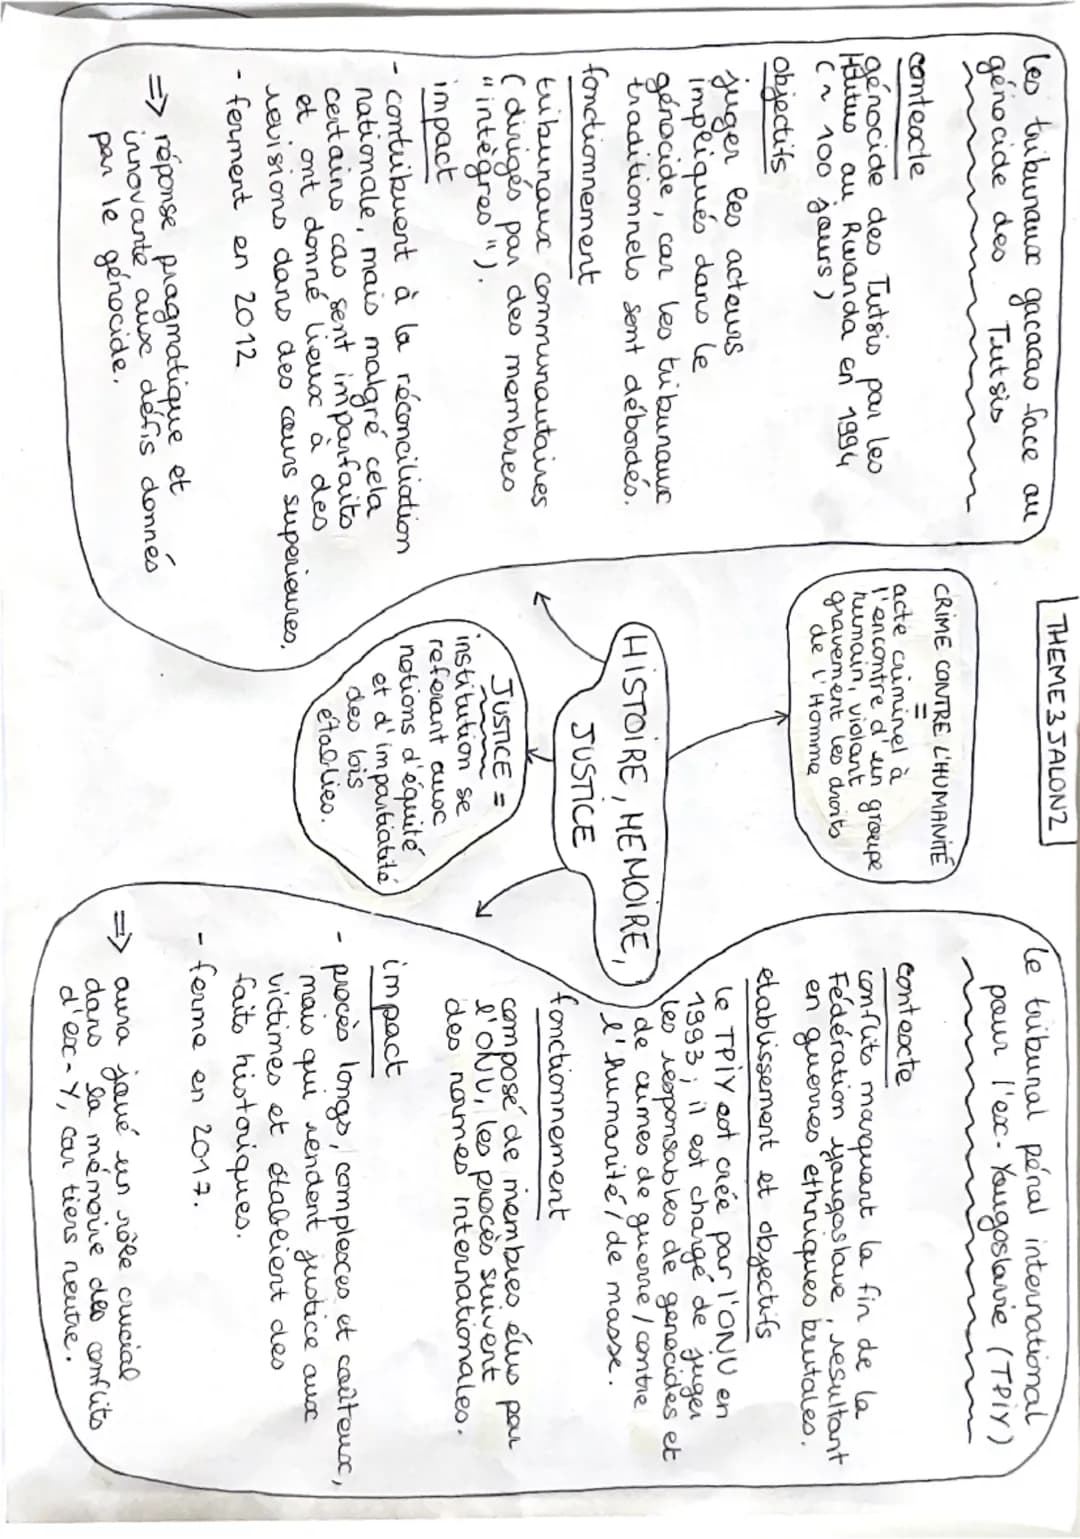 THEME 3 JALON 2
les tribunaux gacacas face au
génocide des Tutsis
contexte
génocide des Tutsis par les
Hutus au Rwanda en 1994
(~ 100 jours)
objectifs
juger les acteurs
impliqués dans le
génocide, car les tribunaux
traditionnels sont débordés.
fonctionnement
tribunaux communautaires
(dirigés par des membres
"intègres").
impact
- contribuent à la réconciliation
nationale, mais malgré cela
certains cas sont imparfaits
et ont donné lieux à des
revisions dans des cours superieures.
- ferment en 2012
=> réponse pragmatique et
innovante aux défis donnés
par le génocide.
CRIME CONTRE L'HUMANITÉ
=
acte criminel à
l'encontre d'un groupe
humain, violant
gravement les droits
de l'Homme
HISTOIRE, MEMOIRE,
JUSTICE
JUSTICE =
institution se
referant aux
notions d'équité
et d'impartialité
des lois
établies.
le tribunal pénal international
pour l'ex-Yougoslavie (TPIY)
contexte
conflits marquant la fin de la
Fédération yougoslave, resultant
en guerres ethniques brutales.
etablissement et objectifs
le TPIY est créé par l'ONU en
1993; il est chargé de juger
les responsables de genocides et
de crimes de guerre / contre
l'humanité / de masse.
fonctionnement
composé de membres élus par
l'ONU, les procès suivent
des normes internationales.
impact
- procès longs, complexes et coûteux,
mais qui rendent justice aux
victimes et établient des
faits historiques.
- ferme en 2017.
=> aura joué un rôle crucial
dans la mémoire des conflits
d'ex-Y, car tiers neutre.